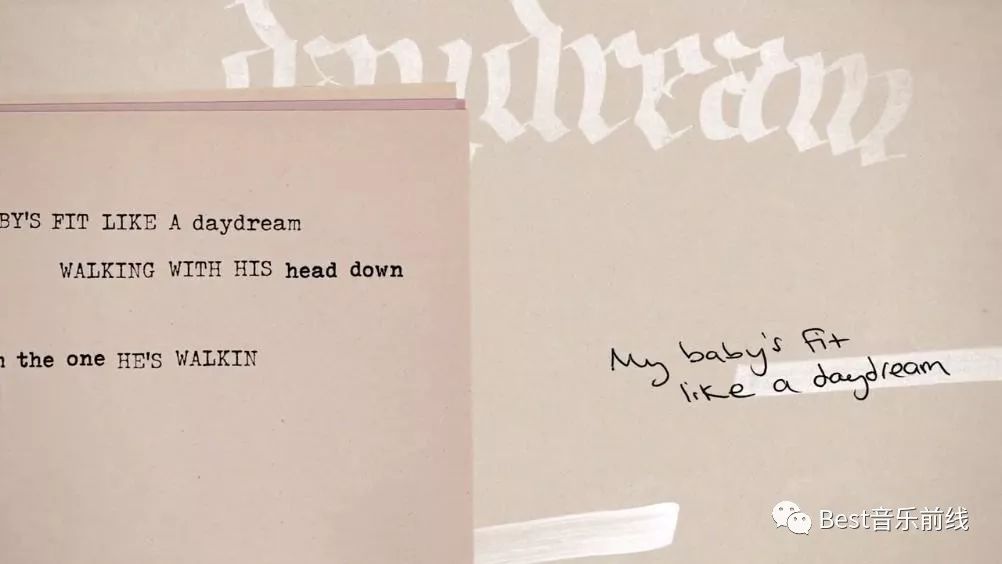 daydream
BY'S FIT LIKE A daydream
WALKING WITH HIS head down
the one HE'S WALKIN
My baby's fit
like a daydream
Best音乐前线